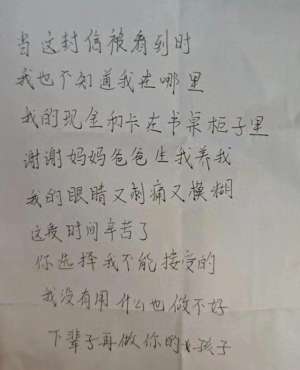 当这封信被看到时
我也不知道我在哪里
我的现金和卡在书桌柜子里
谢谢妈妈爸爸生我养我
我的眼睛又刺痛又模糊
这段时间辛苦了
你选择我不能接受的
我没有用什么也做不好
下辈子再做你的小孩子